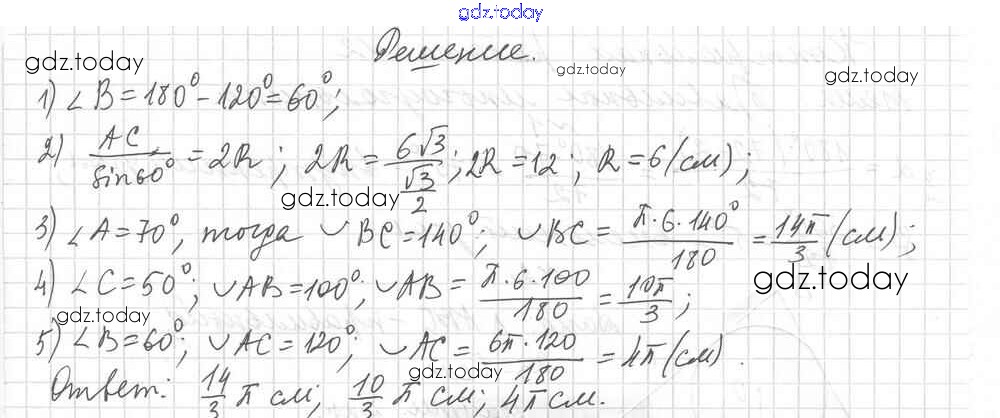 gdz.today
Решение.
gdz.today gdz.today gdz.today
1) ∠B=180°-120°=60°;
2) AC/sin60° = 2R; 2R = 6√3/(√3/2); 2R=12; R=6(см);
gdz.today
3) ∠A=70°, тогда ◡BC=140°; ◡BC = π·6·140°/180 = 14π/3 (см);
4) ∠C=50°; ◡AB=100°, ◡AB = π·6·100/180 = 10π/3;
gdz.today
gdz.today
5) ∠B=60°; ◡AC=120°, ◡AC = 6π·120/180 = 4π(см).
gdz.today
Ответ: 14/3 π см; 10/3 π см; 4π см.